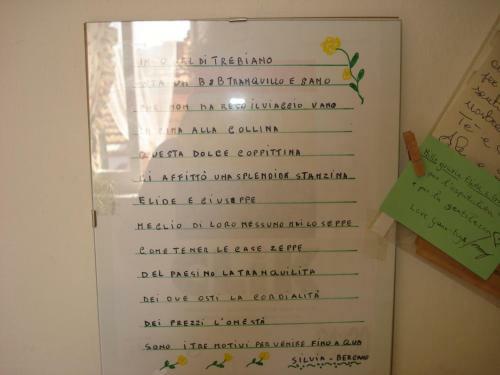 IN QUEL DI TREBIANO
STA UN B&B TRANQUILLO E SANO
CHE NON HA RESO IL VIAGGIO VANO
IN CIMA ALLA COLLINA
QUESTA DOLCE COPPIETTINA
CI AFFITTÒ UNA SPLENDIDA STANZINA
ELIDE E GIUSEPPE
MEGLIO DI LORO NESSUNO MAI LO SEPPE
COME TENER LE CASE ZEPPE
DEL PAESINO LA TRANQUILLITÀ
DEI DUE OSTI LA CORDIALITÀ
DEI PREZZI L'ONESTÀ
SONO I TRE MOTIVI PER VENIRE FINO A QUA
SILVIA - BERGAMO
Mille grazie
per l'ospitalità
e per la gentilezza
Love